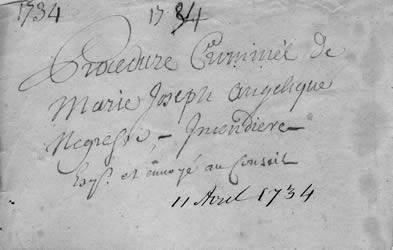 1734 1734
Procedure Criminel de
Marie Joseph Angelique
Negresse, - Incendiere -
Exp. et envoyé au Conseil
11 Avril 1734